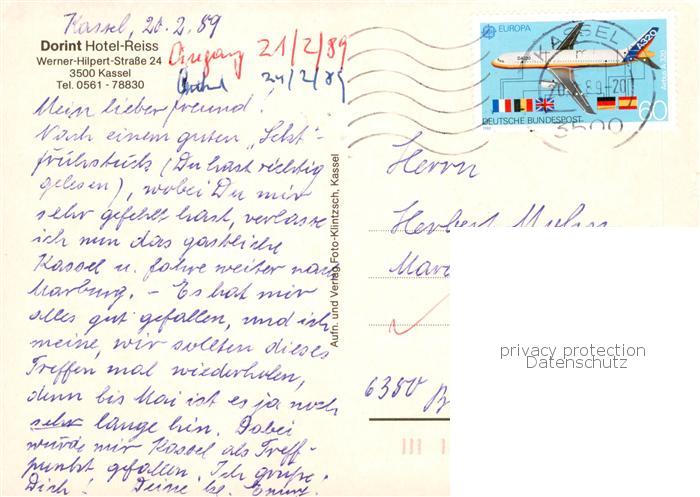 Kassel, 20.2.89
Dorint Hotel-Reiss
Werner-Hilpert-Straße 24
3500 Kassel
Tel. 0561 - 78830
Eingang 21/2/89
24/2/89
Mein lieber Freund!
Nach einem guten „Sekt"-
frühstück (Du hast richtig
gelesen), wobei Du mir
sehr gefehlt hast, verlasse
ich nun das gastliche
Kassel u. fahre weiter nach
Marburg. – Es hat mir
alles gut gefallen, und ich
meine, wir sollten dieses
Treffen mal wiederholen,
denn bis Mai ist es ja noch
sehr lange hin. Dabei
würde mir Kassel als Treff-
punkt gefallen. Ich grüße
Dich! Deine kl.
Aufn. und Verlag Foto-Klintzsch, Kassel
EUROPA
A320
Airbus A 320
DEUTSCHE BUNDESPOST
60
KASSEL
3500
Herrn
Herbert
6350
privacy protection
Datenschutz